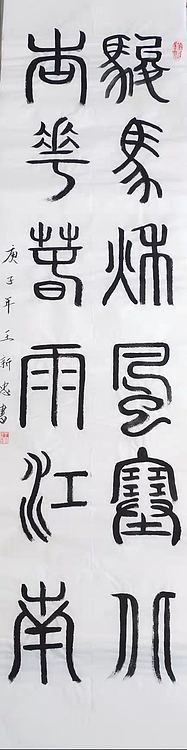 駿馬秋風塞北
杏花春雨江南
庚子年王新忠書